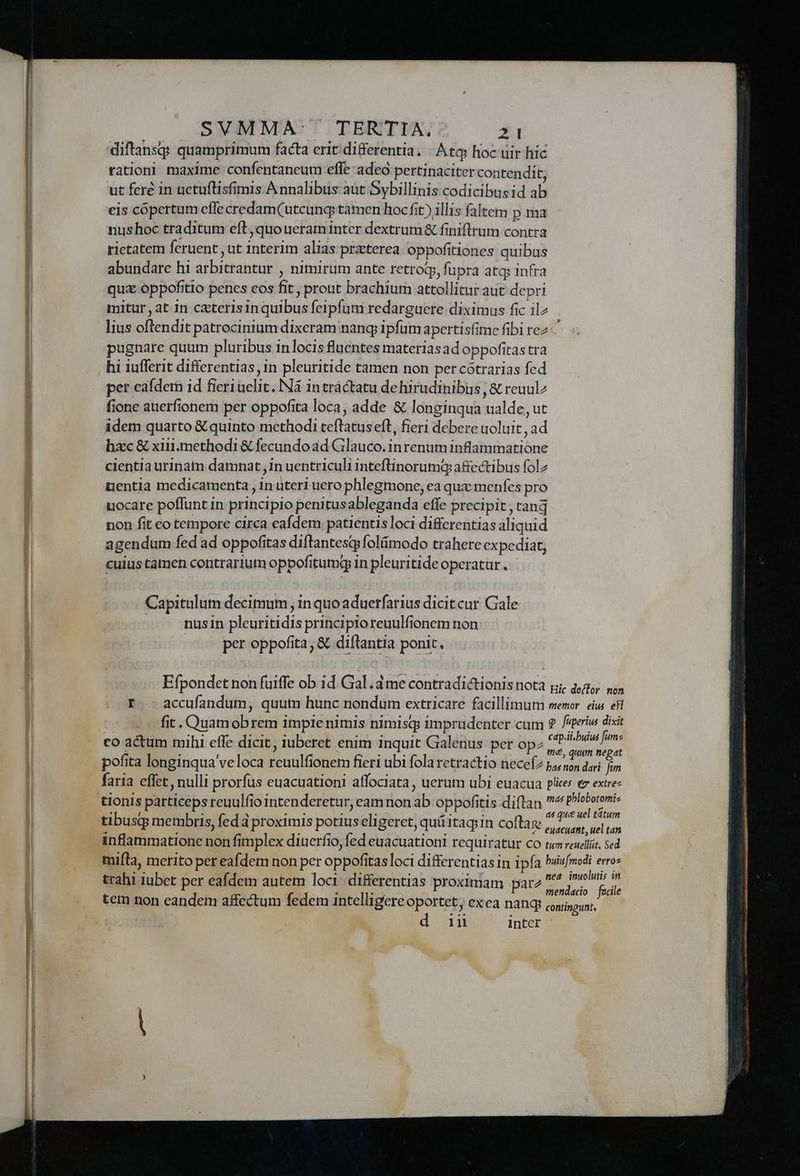 SVMMA TERTIA. 21
diſtansq; quamprimum facta erit differentia. Atq; hoc uir hic
rationi maxime conſentaneum eſſe adeo pertinaciter contendit,
ut ferè in uetuſtisſimis Annalibus aut Sybillinis codicibus id ab
eis cōpertum eſſe credam (utcunq; tamen hoc fit) illis faltem p ma
nus hoc traditum eſt, quo ueram inter dextrum & ſiniſtrum contra
rietatem ſeruent, ut interim alias præterea oppoſitiones quibus
abundare hi arbitrantur, nimirum ante retroq;, ſupra atq; infra
quæ oppoſitio penes eos fit, prout brachium attollitur aut depri
mitur, at in cæteris in quibus ſeipſum redarguere diximus ſic il⸗
lius oſtendit patrocinium dixeram nanq; ipſum apertisſime ſibi re⸗
pugnare quum pluribus in locis fluentes materias ad oppoſitas tra
hi iuſſerit differentias, in pleuritide tamen non per cōtrarias ſed
per eaſdem id fieri uelit. Nā in tractatu de hirudinibus, & reuul⸗
ſione auerſionem per oppoſita loca, adde & longinqua ualde, ut
idem quarto & quinto methodi teſtatus eſt, fieri debere uoluit, ad
hæc & xiii. methodi & ſecundo ad Glauco. in renum inflammatione
cientia urinam damnat, in uentriculi inteſtinorumq; affectibus ſol⸗
uentia medicamenta, in uteri uero phlegmone, ea quæ menſes pro
uocare poſſunt in principio penitus ableganda eſſe precipit, tanq̄
non fit eo tempore circa eaſdem patientis loci differentias aliquid
agendum ſed ad oppoſitas diſtantesq; ſolūmodo trahere expediat,
cuius tamen contrarium oppoſitumq; in pleuritide operatur.
Capitulum decimum, in quo aduerſarius dicit cur Gale
nus in pleuritidis principio reuulſionem non
per oppoſita, & diſtantia ponit.
Eſpondet non fuiſſe ob id Gal. à me contradictionis nota
r accuſandum, quum hunc nondum extricare facillimum
fit. Quamobrem impie nimis nimisq; imprudenter cum
eo actum mihi eſſe dicit, iuberet enim inquit Galenus per op⸗
poſita longinqua've loca reuulſionem fieri ubi ſola retractio neceſ⸗
ſaria eſſet, nulli prorſus euacuationi aſſociata, uerum ubi euacua
tionis particeps reuulſio intenderetur, eam non ab oppoſitis diſtan
tibusq; membris, ſed à proximis potius eligeret, quū itaq; in coſtaꝝ
inflammatione non ſimplex diuerſio, ſed euacuationi requiratur co
miſta, merito per eaſdem non per oppoſitas loci differentias in ipſa
trahi iubet per eaſdem autem loci differentias proximam par⸗
tem non eandem affectum ſedem intelligere oportet, ex ea nanq;
Hic doctor non
memor eius eſt
ꝙ ſuperius dixit
cap. ii. huius ſum⸗
mæ, quum negat
has non dari ſim
plices & extre⸗
mas phlobotomi⸗
as quæ uel tātum
euacuant, uel tan
tum reuellūt, Sed
huiuſmodi erro⸗
nea inuolutis in
mendacio facile
contingunt.
d iii inter